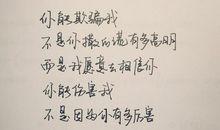 你能欺骗我
不是你撒的谎有多高明
而是我愿意去相信你
你能伤害我
不是因为你有多厉害